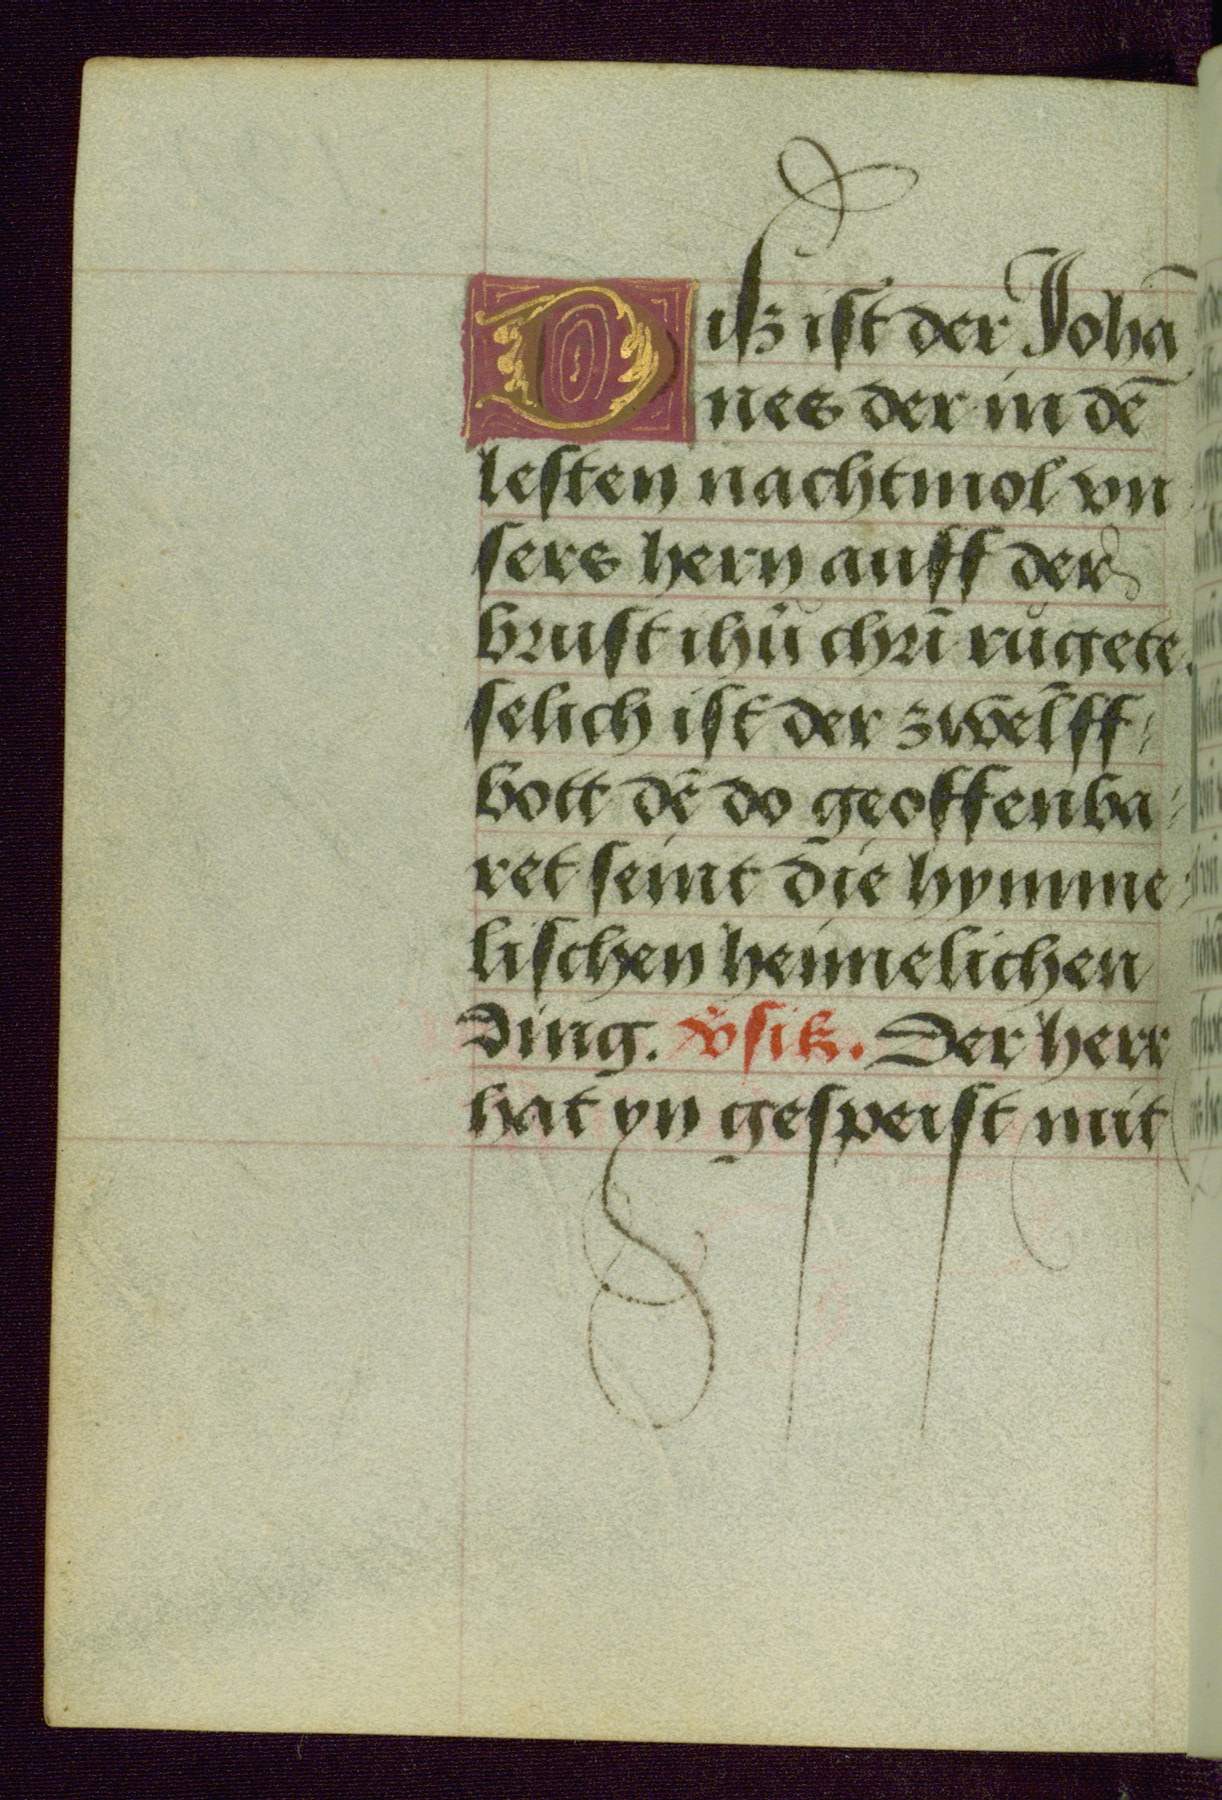 Diſz iſt der Johā
nes der in dē
leſten nachtmol vn
ſers hern auff der
bruſt ihū chrī růgete.
ſelich iſt der zwelff
bott dē do geoffenba
ret ſeint die hymme
liſchen heimelichen
Ding. v̓ſik. Der herr
hat yn geſpeiſt mit